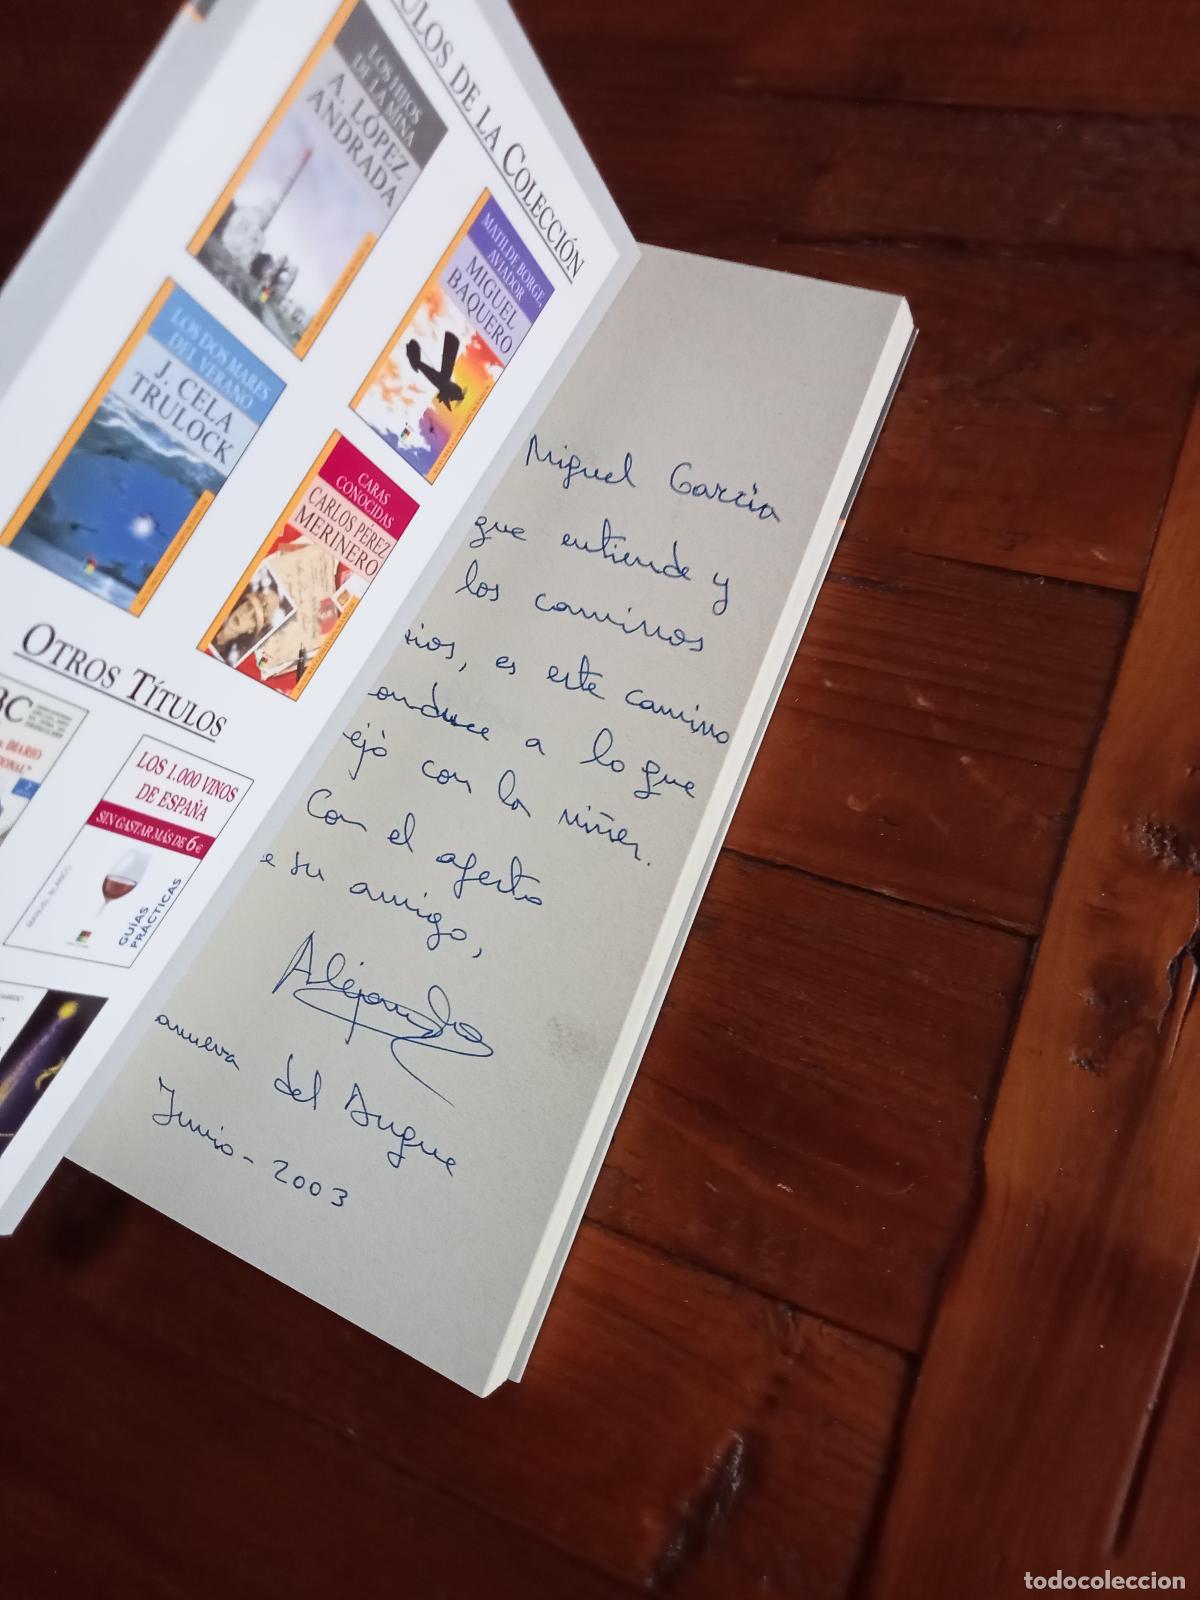 ULOS DE LA COLECCIÓN
LOS HIJOS
DE LA MINA
A. LÓPEZ
ANDRADA
MATILDE BORGE,
AVIADOR
MIGUEL
BAQUERO
LOS DOS MARES
DEL VERANO
J. CELA
TRULOCK
CARAS
CONOCIDAS
CARLOS PÉREZ
MERINERO
OTROS TÍTULOS
BC
DIARIO
IONAL"
LOS 1.000 VINOS
DE ESPAÑA
SIN GASTAR MÁS DE 6€
MANUEL BLANCO
GUÍAS
PRÁCTICAS
Miguel García
que entiende y
los caminos
rios, es este camino
onduce a lo que
ejó con la niñez.
Con el afecto
e su amigo,
Alejandro
anueva del Duque
Junio - 2003
todocoleccion